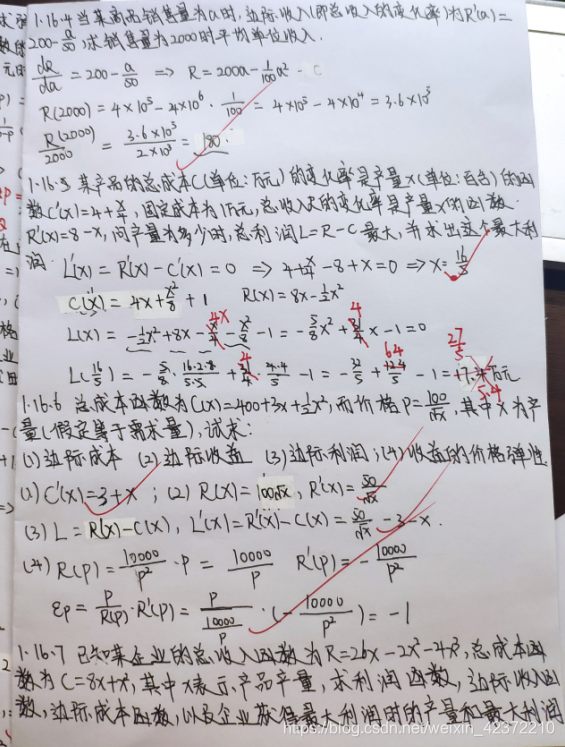 1.16.4 当某商品销售量为a时,边际收入(即总收入的变化率)为R'(a)=
200-a/50,求销售量为2000时平均单位收入.
dR/da = 200-a/50 ⇒ R=200a-1/100a²
R(2000)=4×10⁵-4×10⁶·1/100=4×10⁵-4×10⁴=3.6×10⁵
R(2000)/2000=3.6×10⁵/2×10³=180.
1.16.5 某产品的总成本C(单位:万元)的变化率是产量x(单位:百台)的函
数C'(x)=4+x/4,固定成本为1万元,总收入R的变化率是产量x的函数.
R'(x)=8-x,问产量为多少时,总利润L=R-C最大,并求出这个最大利
润.
L'(x)=R'(x)-C'(x)=0 ⇒ 4+x/4-8+x=0 ⇒ x=16/5
C(x)=4x+x²/8+1 R(x)=8x-½x²
4x 4
L(x)=-½x²+8x-x²/8-1=-5/8x²+x-1=0
64 27/5
L(16/5)=-5/8·16·2·8/5·5+·4·4/5-1=-32/5+-1=万元
5.4
1.16.6 总成本函数为C(x)=400+3x+½x²,而价格P=100/√x,其中x为产
量(假定等于需求量),试求:
(1)边际成本 (2)边际收益 (3)边际利润;(4)收益的价格弹性
(1)C'(x)=3+x;(2)R(x)=100√x,R'(x)=50/√x
(3)L=R(x)-C(x),L'(x)=R'(x)-C'(x)=50/√x-3-x.
(4)R(p)=10000/p²·p=10000/p R'(p)=-10000/p²
εp=p/R(p)·R'(p)=p/(10000/p)·(-10000/p²)=-1
1.16.7 已知某企业的总收入函数为R=26x-2x²-4x³,总成本函
数为C=8x+x²,其中x表示产品产量,求利润函数,边际收入函
数,边际成本函数,以及企业获得最大利润时的产量和最大利润
https://blog.csdn.net/weixin_42372210